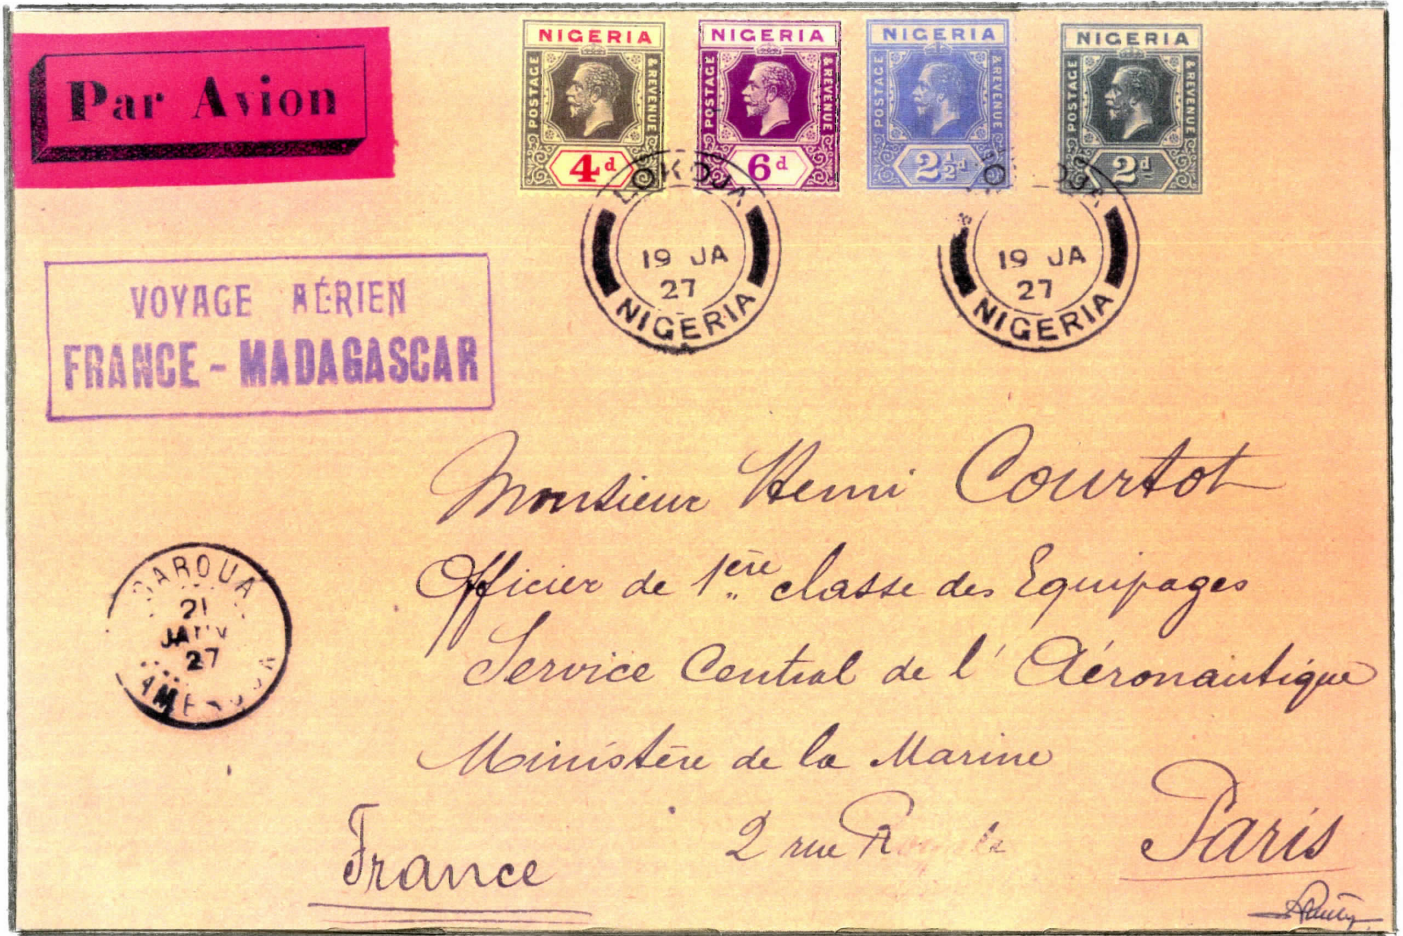 Par Avion
NIGERIA
POSTAGE & REVENUE
4d
NIGERIA
POSTAGE & REVENUE
6d
NIGERIA
POSTAGE & REVENUE
2½d
NIGERIA
POSTAGE & REVENUE
2d
LOKOJA
19 JA
27
NIGERIA
LOKOJA
19 JA
27
NIGERIA
VOYAGE AÉRIEN
FRANCE - MADAGASCAR
Monsieur Henri Courtot
Officier de 1ère classe des Equipages
Service Central de l'Aéronautique
Ministère de la Marine
2 rue Royale Paris
France
GAROUA
21
JANV
27
CAMEROUN